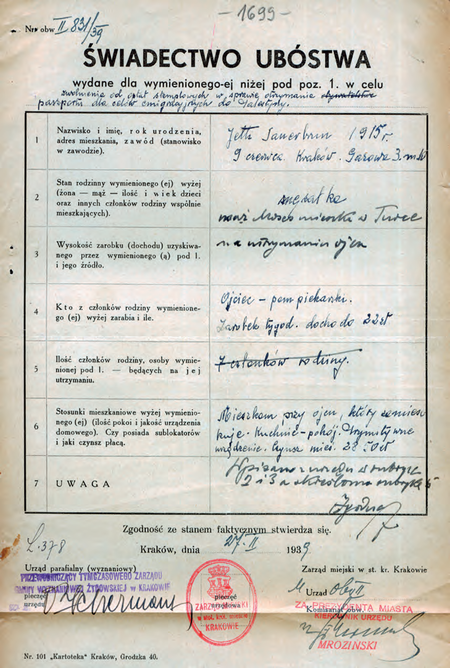 -1699-
Nr. obw II 831/39
ŚWIADECTWO UBÓSTWA
wydane dla wymienionego-ej niżej pod poz. 1. w celu
zwolnienia od opłat stemplowych w sprawie otrzymania
paszportu dla celów emigracyjnych do Palestyny.
1
Nazwisko i imię, rok urodzenia,
adres mieszkania, zawód (stanowisko
w zawodzie).
Jetta Sauerbrun 1915 r.
9 czerwca Kraków. Gazowa 3. m
2
Stan rodzinny wymienionego (ej) wyżej
(żona — mąż — ilość i wiek dzieci
oraz innych członków rodziny wspólnie
mieszkających).
mężatka
mąż mieszka w
3
Wysokość zarobku (dochodu) uzyskiwa-
nego przez wymienionego (ą) pod 1.
i jego źródło.
na utrzymaniu ojca
4
Kto z członków rodziny wymienione-
go (ej) wyżej zarabia i ile.
Ojciec - pom piekarski.
Zarobek tygod. dochodo 22 zł
5
Ilość członków rodziny, osoby wymie-
nionej pod 1. — będących na jej
utrzymaniu.
7 członków rodziny.
6
Stosunki mieszkaniowe wyżej wymienio-
nego (ej) (ilość pokoi i jakość urządzenia
domowego). Czy posiada sublokatorów
i jaki czynsz płacą.
Mieszkam przy ojcu, który zamiesz
kuje - Kuchnię - pokój. Prymitywne
urządzenie. Czynsz mies. 22 zł
7
UWAGA
Wpisano z urzędu w rubryce
2 i 3 a skreślono rubrykę 5
Zgodność ze stanem faktycznym stwierdza się.
L. 378
Kraków, dnia 27. II 1939
Urząd parafialny (wyznaniowy)
Zarząd miejski w st. kr. Krakowie
PRZEWODNICZĄCY TYMCZASOWEGO ZARZĄDU
GMINY WYZNANIOWEJ ŻYDOWSKIEJ w KRAKOWIE
pieczęć
urzędu
pieczęć
urzędowa
ZARZĄD MIEJSKI
w stoł. król. mieście
KRAKOWIE
M Urząd obw II
Komisariat obw.
ZA PREZYDENTA MIASTA
KIEROWNIK URZĘDU
MROZIŃSKI
Nr. 101 „Kartoteka" Kraków, Grodzka 40.